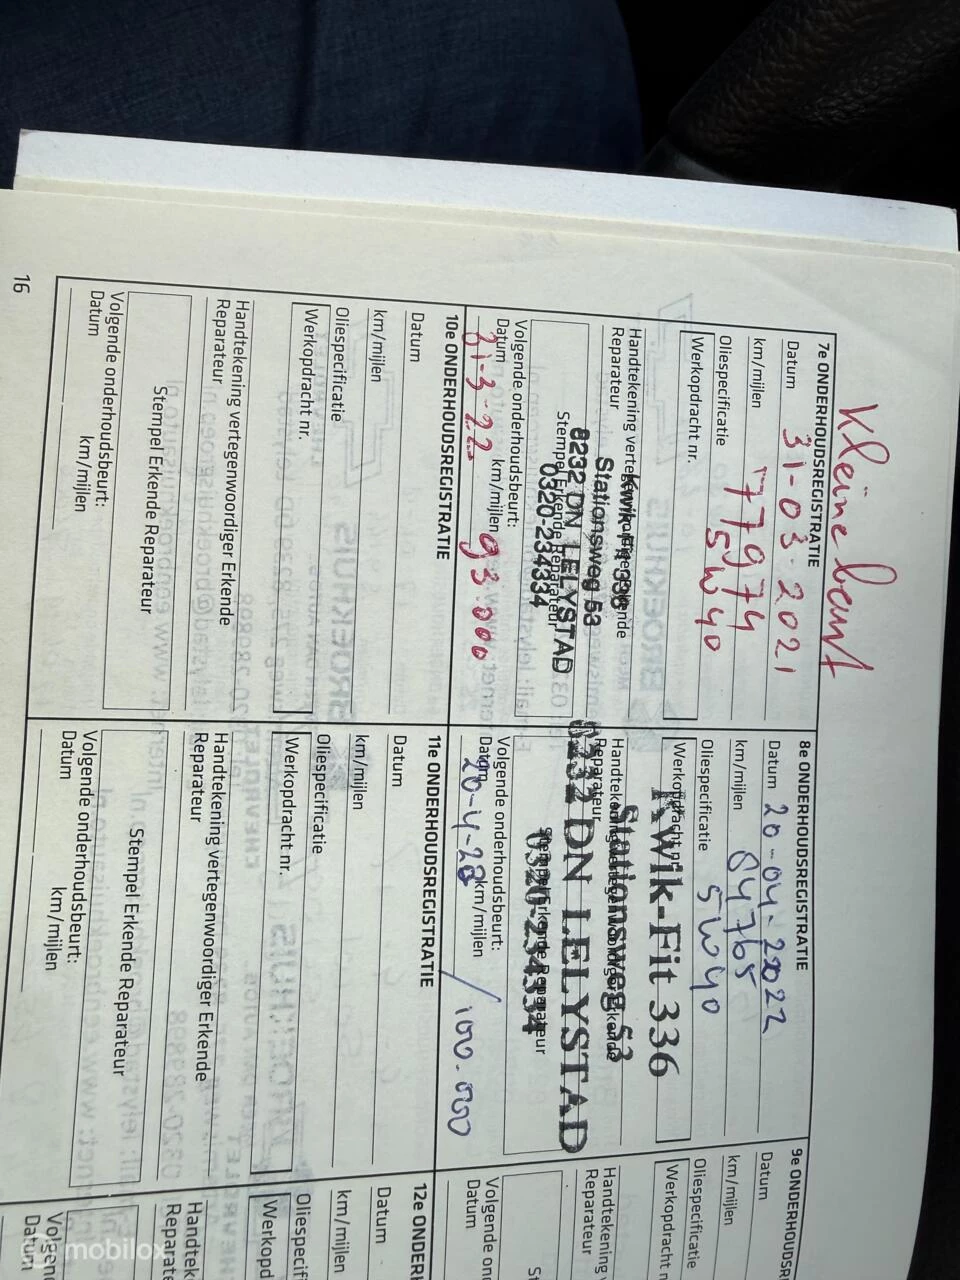 Kleine beurt
7e ONDERHOUDSREGISTRATIE
Datum 31-03-2021
km/mijlen 77974
Oliespecificatie 5W40
Werkopdracht nr.
Handtekening vertegenwoordiger Erkende
Reparateur
Kwik-Fit 336
Stationsweg 53
8232 DN LELYSTAD
0320-234334
Stempel Erkende Reparateur
Volgende onderhoudsbeurt:
Datum km/mijlen
31-3-22 93.000
8e ONDERHOUDSREGISTRATIE
Datum 20-04-2022
km/mijlen 84765
Oliespecificatie 5W40
Werkopdracht nr.
Kwik-Fit 336
Handtekening vertegenwoordiger Erkende
Reparateur
Stationsweg 53
8232 DN LELYSTAD
0320-234334
Stempel Erkende Reparateur
Volgende onderhoudsbeurt:
Datum km/mijlen
20-4-23 / 100.000
9e ONDERHOUDSR
Datum
km/mijlen
Oliespecificatie
Werkopdracht n
Handtekening
Reparateur
St
Volgende on
Datum
10e ONDERHOUDSREGISTRATIE
Datum
km/mijlen
Oliespecificatie
Werkopdracht nr.
Handtekening vertegenwoordiger Erkende
Reparateur
Stempel Erkende Reparateur
Volgende onderhoudsbeurt:
Datum km/mijlen
11e ONDERHOUDSREGISTRATIE
Datum
km/mijlen
Oliespecificatie
Werkopdracht nr.
Handtekening vertegenwoordiger Erkende
Reparateur
Stempel Erkende Reparateur
Volgende onderhoudsbeurt:
Datum km/mijlen
12e ONDERH
Datum
km/mijlen
Oliespecif
Werkopd
Handteke
Reparate
Volgen
Datum
16
mobilox